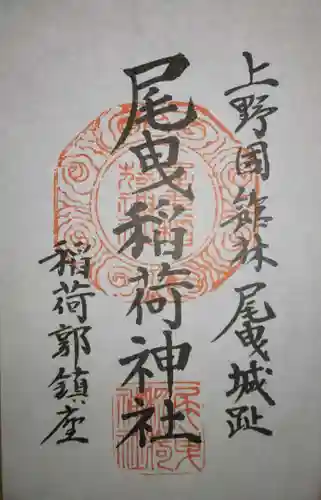 上野国舘林尾曳城趾
尾曳稲荷神社
稲荷郭鎮座